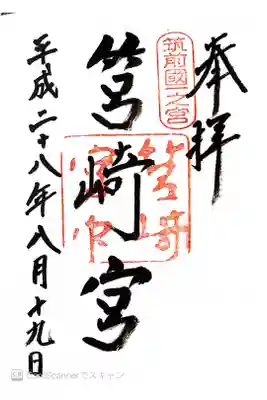 奉拝
筑前國一之宮
筥崎宮
筥崎宮
平成二十八年八月十九日
CamScannerでスキャン